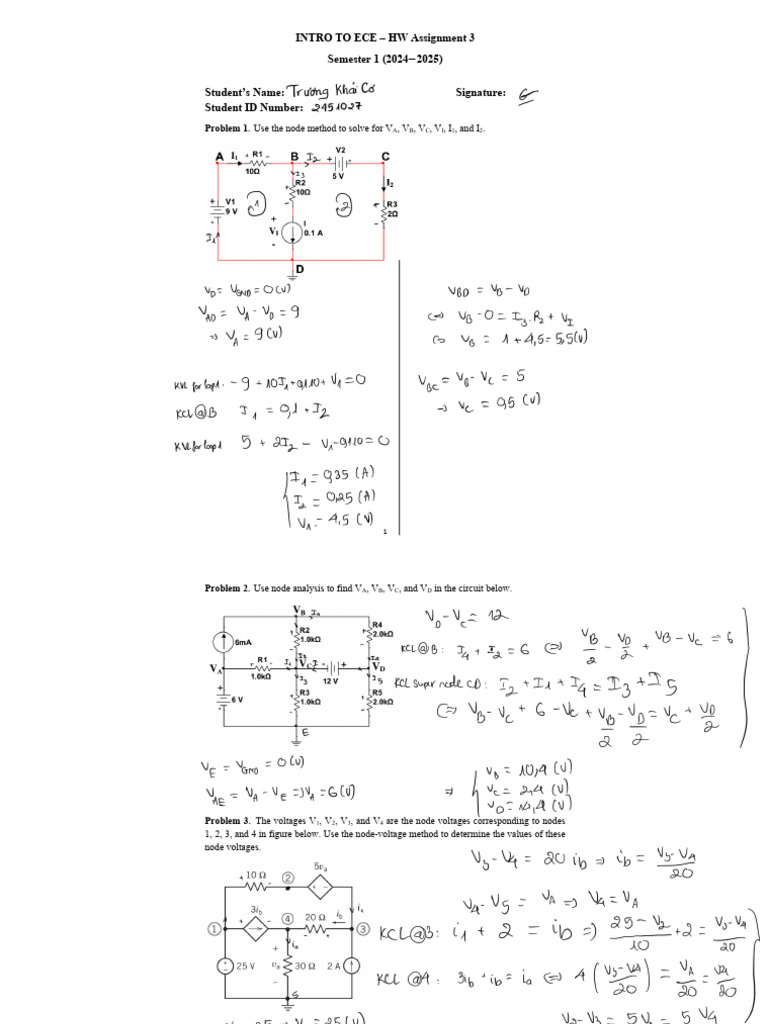 INTRO TO ECE – HW Assignment 3
Semester 1 (2024–2025)
Student's Name: Trương Khải Cơ Signature:
Student ID Number: 2451027
Problem 1. Use the node method to solve for VA, VB, VC, VI, I1, and I2.
A I1 + R1 - B I2 + V2 C
10Ω 5 V
I3 R2 10Ω I2
+ V1 9 V 1 2 + R3 2Ω
+ VI - I 0.1 A
I1
D
VD = VGND = 0 (V)
VAD = VA - VD = 9
⇒ VA = 9 (V)
KVL for loop1. - 9 + 10I1 + 0,1.10 + V1 = 0
KCL@B I1 = 0,1 + I2
KVL for loop1 5 + 2I2 - V1 - 0,1.10 = 0
I1 = 0,35 (A)
I2 = 0,25 (A)
V1 = 4,5 (V)
VBD = VB - VD
⇔ VB - 0 = I3.R2 + VI
⇔ VB = 1 + 4,5 = 5,5 (V)
VBC = VB - VC = 5
→ VC = 0,5 (V)
1
Problem 2. Use node analysis to find VA, VB, VC, and VD in the circuit below.
VB I4
6mA R2 1.0kΩ R4 2.0kΩ
VA R1 I1 VC + VD
1.0kΩ 12 V
6 V R3 1.0kΩ I3 R5 2.0kΩ I5
E
VD - VC = 12
KCL@B: I4 + I2 = 6 ⇔ VB/2 - VD/2 + VB - VC = 6
KCL super node CD: I2 + I1 + I4 = I3 + I5
⇔ VB - VC + 6 - VC + VB/2 - VD/2 = VC + VD/2
VE = VGND = 0 (V)
VAE = VA - VE ⇒ VA = 6 (V)
⇒ VB = 10,4 (V)
VC = 2,4 (V)
VD = 14,4 (V)
Problem 3. The voltages V1, V2, V3, and V4 are the node voltages corresponding to nodes
1, 2, 3, and 4 in figure below. Use the node-voltage method to determine the values of these
node voltages.
5va
10 Ω 2
3ib 4 20 Ω ib
1 3
+ ia
25 V va 30 Ω 2 A
-
5
V3 - V4 = 20 ib ⇒ ib = V3 - V4/20
V4 - V5 = VA ⇒ V4 = VA
KCL@3: i1 + 2 = ib ⇒ 25 - V2/10 + 2 = V3 - V4/20
KCL @4: 3ib + ib = ia ⇔ 4 (V3 - V4/20) = VA/20 = V4/20
V2 - V3 = 5 Va = 5 V4